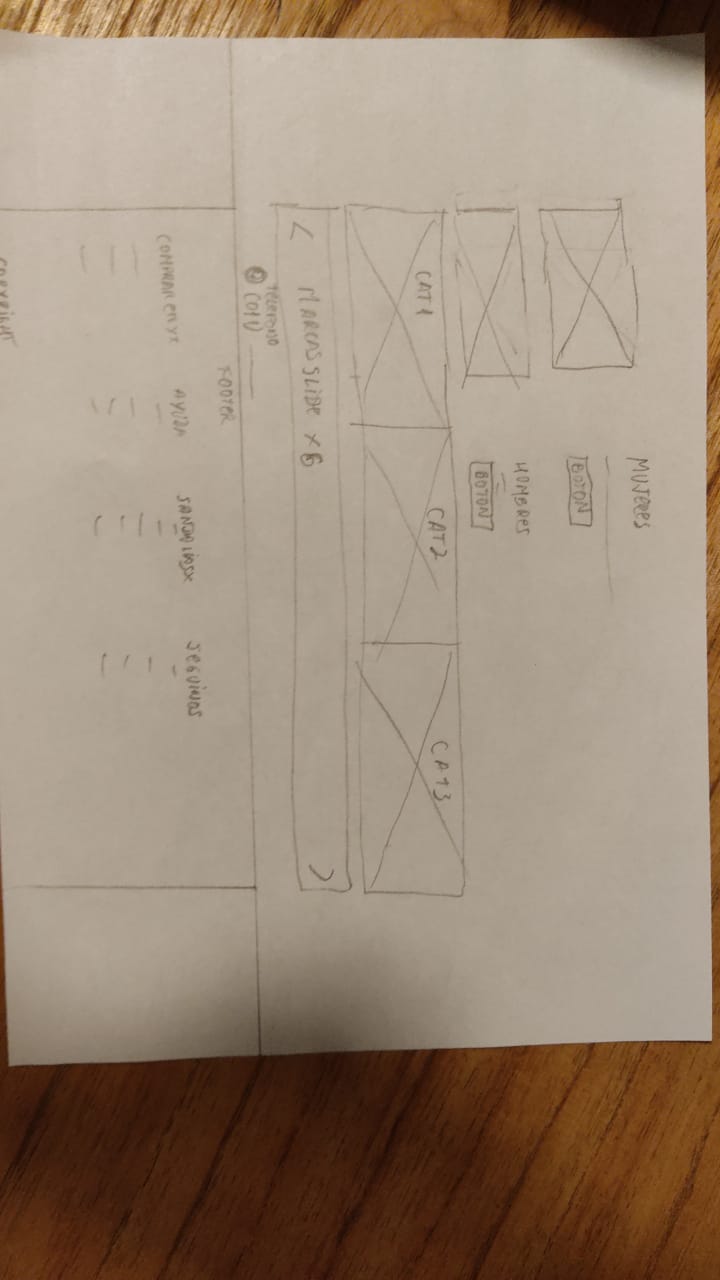 MUJERES
BOTON
HOMBRES
BOTON
CAT1
CAT2
CAT3
< MARCAS SLIDE x 6 >
TELEFONO
FOOTER
COMPRAR EN YX
AYUDA
SEGUINOS
COPYRIGHT